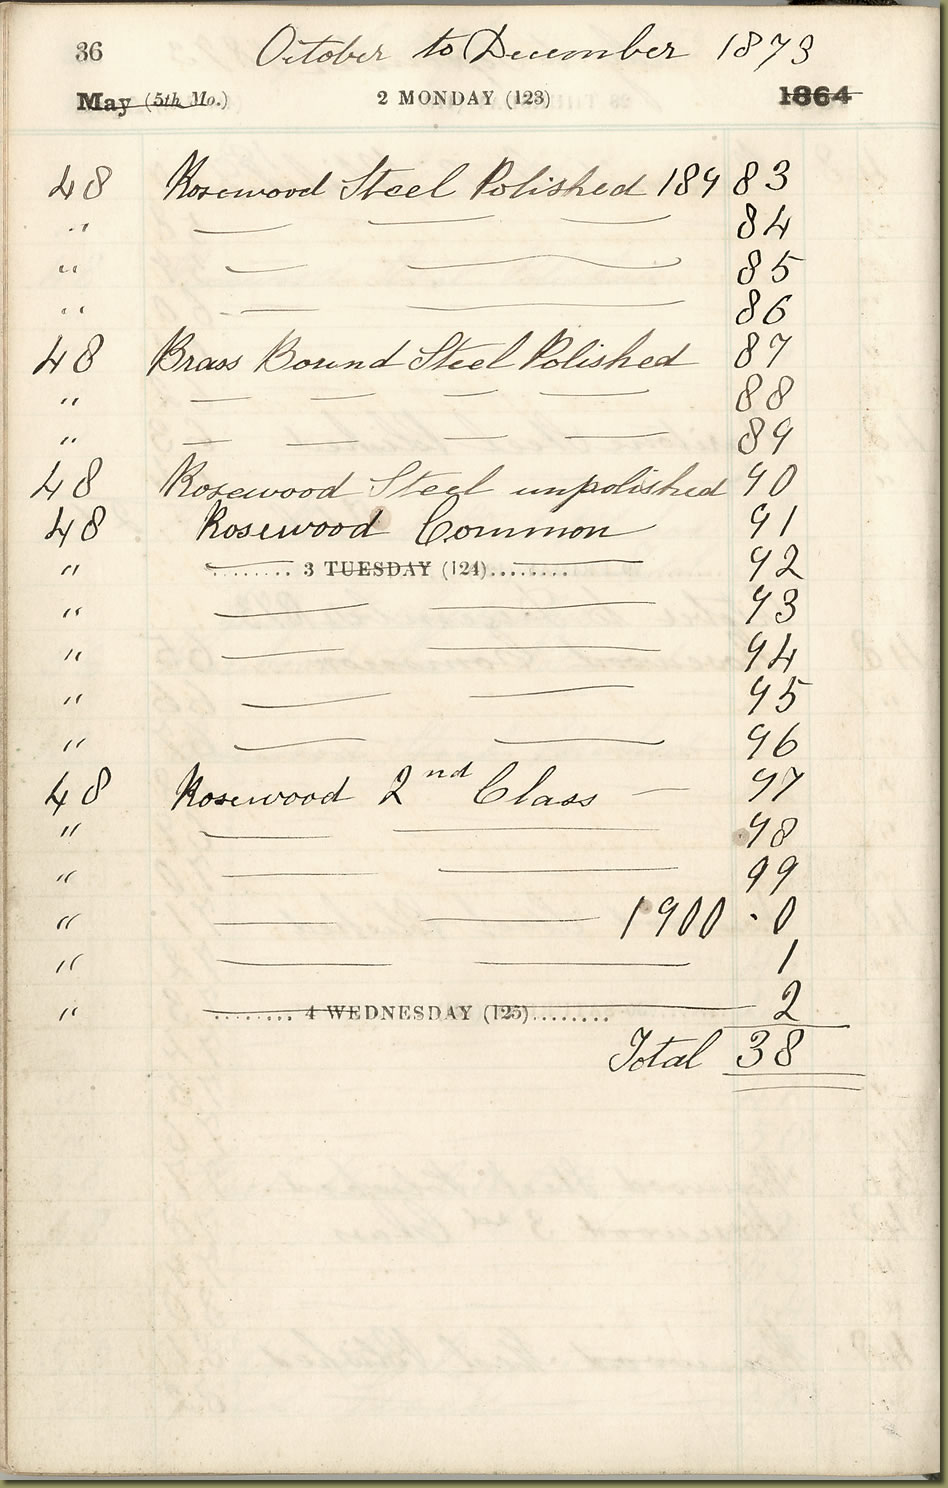 36 October to December 1873
May (5th Mo.) 2 MONDAY (123) 1864
48 Rosewood Steel Polished 189 83
" 84
" 85
" 86
48 Brass Bound Steel Polished 87
" 88
" 89
48 Rosewood Steel unpolished 90
48 Rosewood Common 91
" ........ 3 TUESDAY (124)........ 92
" 93
" 94
" 95
" 96
48 Rosewood 2nd Class — 97
" 98
" 99
" 1900 · 0
" 1
" ........ 4 WEDNESDAY (125)........ 2
Total 38